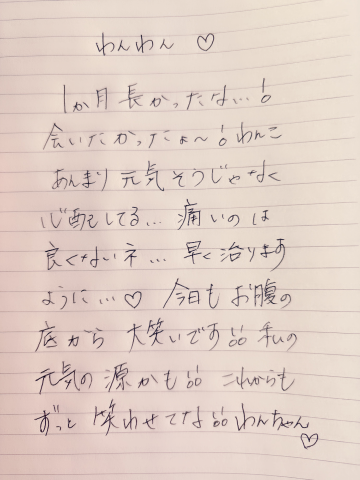 わんわん ♡
1か月 長かったな…!
会いたかったょ～!わんこ
あんまり 元気 そうじゃなく
心配してる… 痛いのは
良くないネ… 早く治ります
ように…♡ 今日も お腹の
底から 大笑いです!! 私の
元気の 源かも!! これからも
ずっと 笑わせてな!! わんちゃん
♡